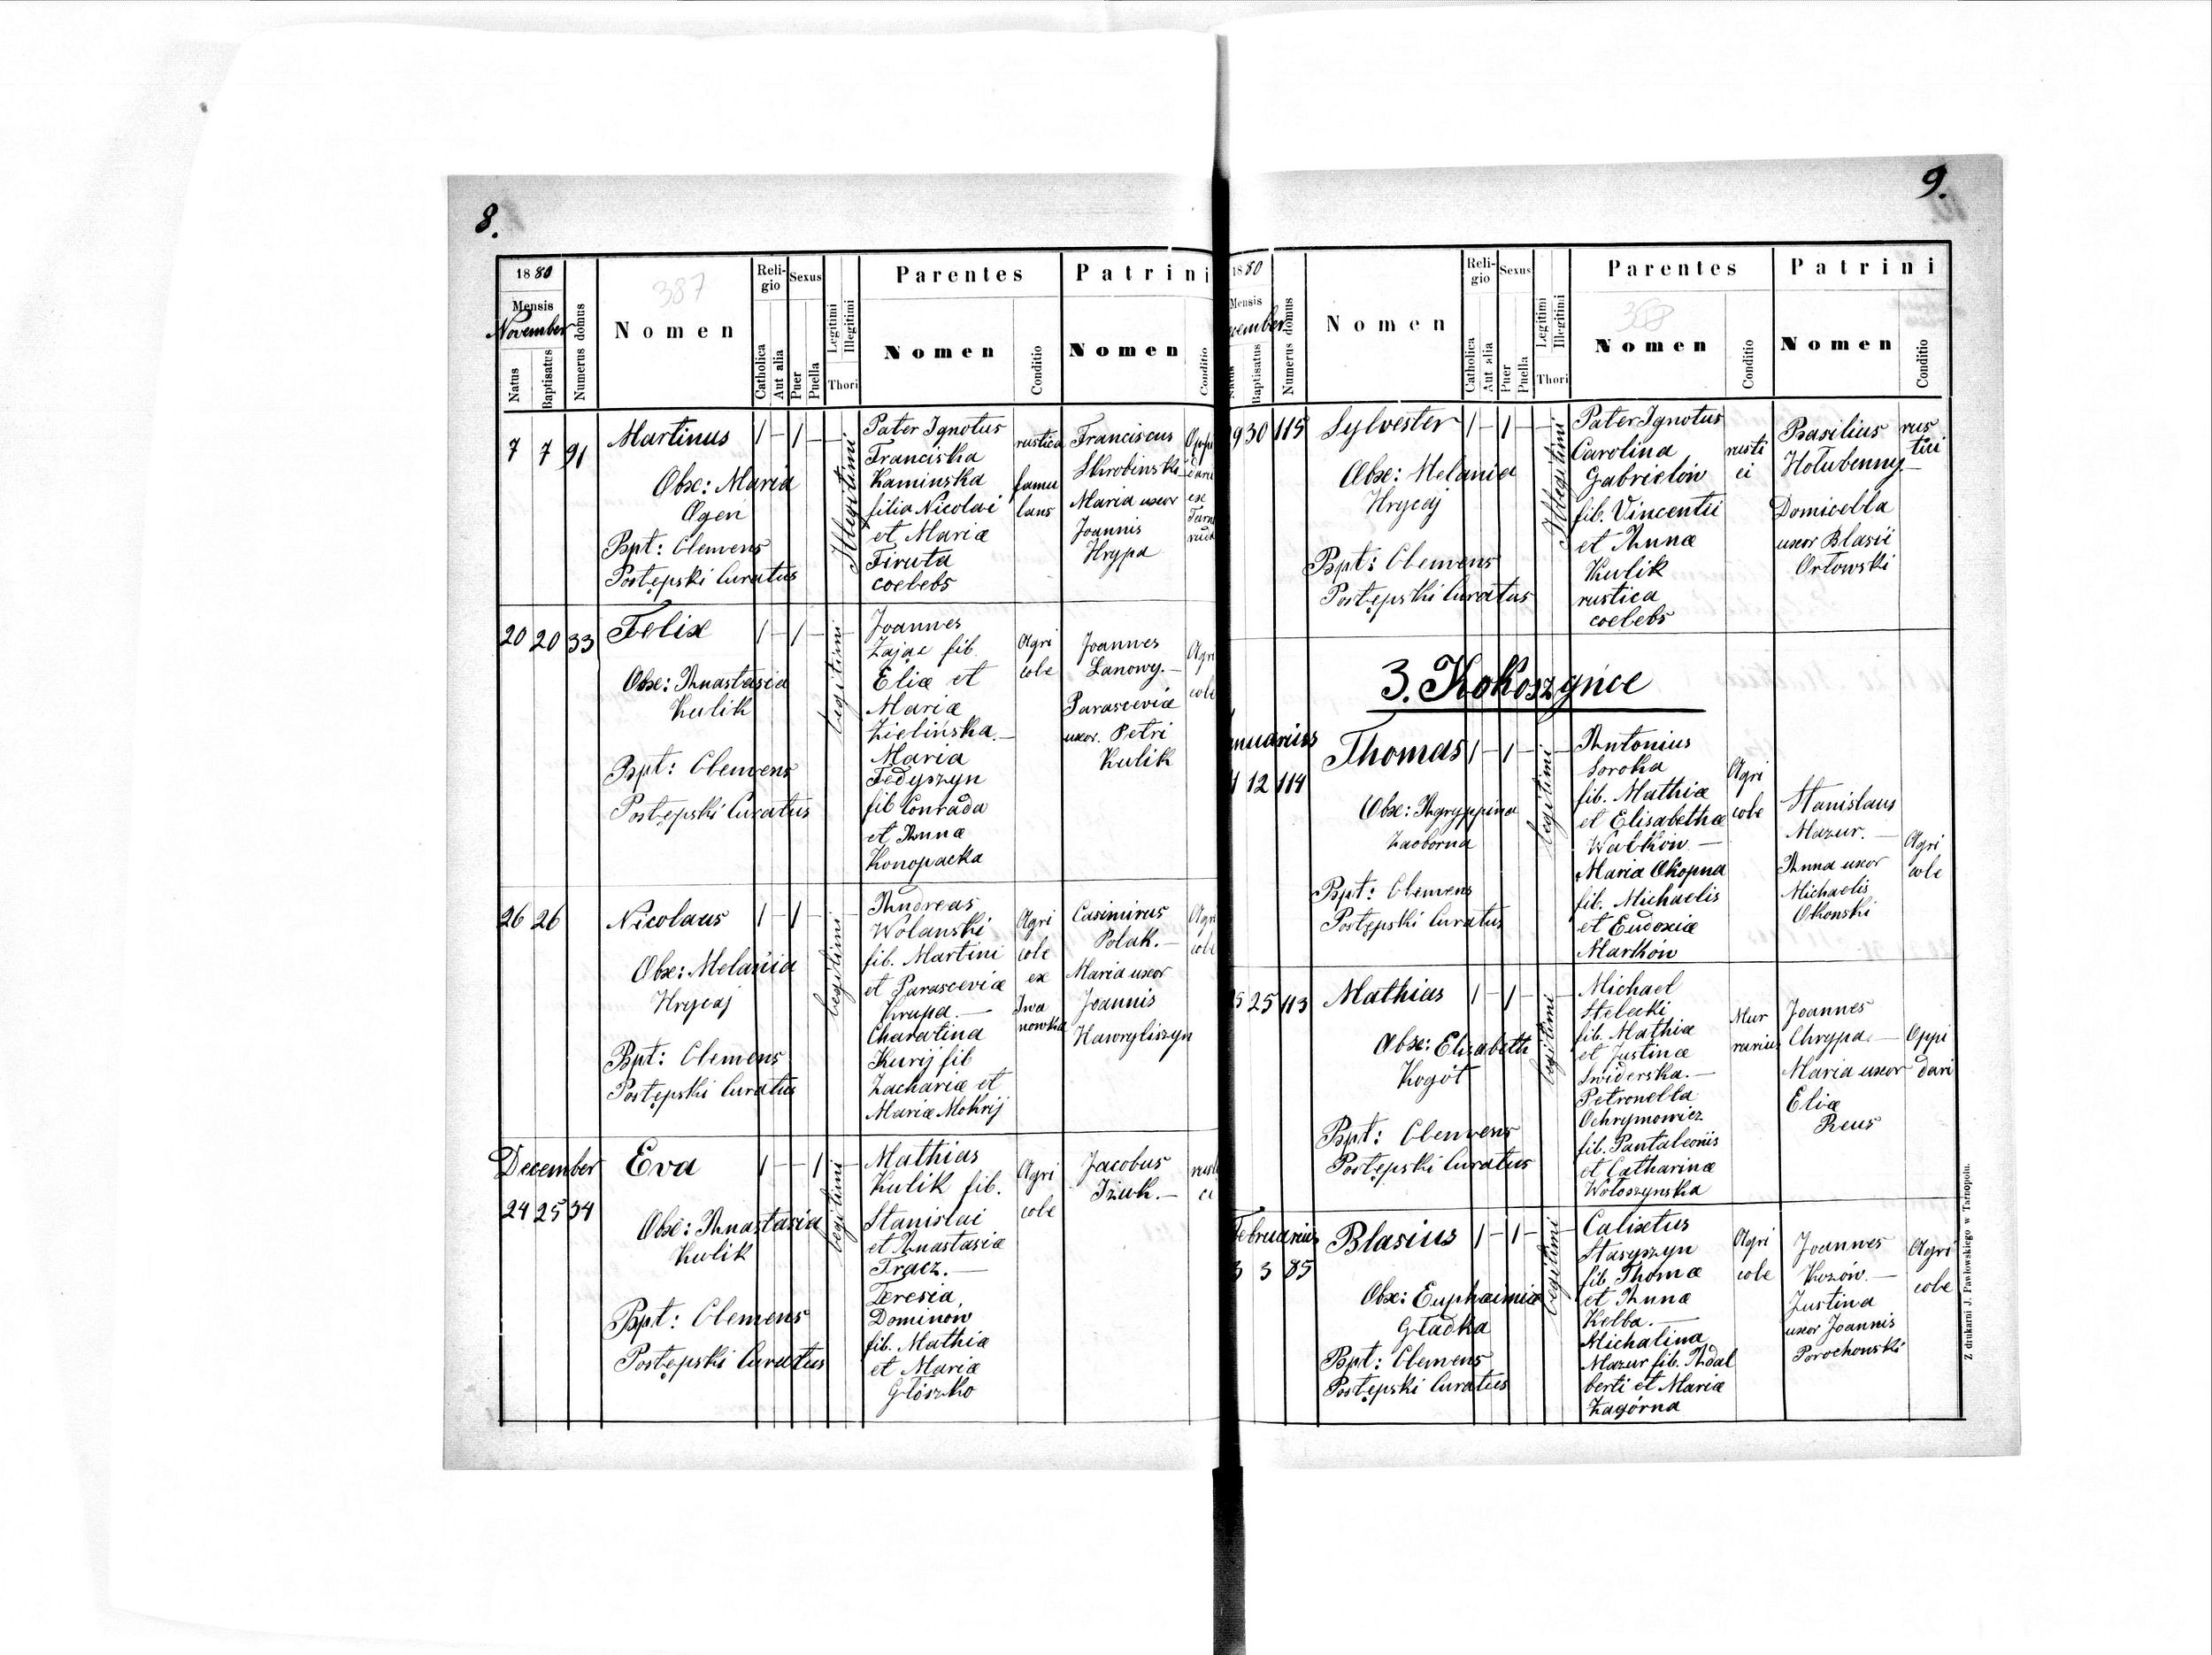 8.
1880
Mensis
November
Natus
Baptisatus
Numerus domus
387
Nomen
Religio
Catholica
Aut alia
Sexus
Puer
Puella
Legitimi
Illegitimi
Thori
Parentes
Nomen
Conditio
Patrini
Nomen
Conditio
7 7 91
Martinus
Obse: Maria
Agen
Bpt: Clemens
Postępski Curatus
Illegitimi
Pater Ignotus
Franciska
Kaminska
filia Nicolai
et Mariæ
Firuta
coelebs
rustica
famu
lans
Franciscus
Skrobinski
Maria uxor
Joannis
Hrypa
20 20 33
Felix
Obse: Anastasia
Kulik
Bpt: Clemens
Postępski Curatus
legitimi
Joannes
Zając fil.
Eliæ et
Mariæ
Zielińska.—
Maria
Fedyszyn
fil Conrada
et Annæ
Konopacka
Agri
colæ
Joannes
Lanowy.—
Parasceviæ
uxor. Petri
Kulik
26 26
Nicolaus
Obse: Melania
Hrycaj
Bpt: Clemens
Postępski Curatus
legitimi
Andreas
Wolanski
fil. Martini
et Parasceviæ
Krupa.—
Charatina
Kurij fil
Zachariæ et
Mariæ Mokrij
Agri
colæ
ex
Iwa
nowka
Casimirus
Polak.—
Maria uxor
Joannis
Hawryliszyn
December
24 25 34
Eva
Obse: Anastasia
Kulik
Bpt: Clemens
Postępski Curatus
legitimi
Mathias
Kulik fil.
Stanislai
et Anastasiæ
Tracz.—
Teresia
Dominów
fil. Mathiæ
et Mariæ
Głószko
Agri
colæ
Jacobus
Iżuk.—
9.
1880
Mensis
Baptisatus
Numerus domus
Nomen
Religio
Catholica
Aut alia
Sexus
Puer
Puella
Legitimi
Illegitimi
Thori
Parentes
Nomen
Conditio
Patrini
Nomen
Conditio
30 115
Sylvester
Obse: Melania
Hrycaj
Bpt: Clemens
Postępski Curatus
Illegitimi
Pater Ignotus
Carolina
Gabrielów
fil. Vincentii
et Annæ
Kulik
rustica
coelebs
rusti
ci
Basilius
Hołubenny—
Domicella
uxor Blasii
Orłowski
rus
tici
3. Kokoszyńce
12 114
Thomas
Obse: Agryppina
Zaoborna
Bpt: Clemens
Postępski Curatus
legitimi
Antonius
Soroka
fil. Mathiæ
et Elisabethæ
Walków—
Maria Okopna
fil. Michaelis
et Eudoxiæ
Marków
Agri
colæ
Stanislaus
Mazur.—
Anna uxor
Michaelis
Okonski
Agri
colæ
25 113
Mathias
Obse: Elisabeth
Kogót
Bpt: Clemens
Postępski Curatus
legitimi
Michael
Stelecki
fil. Mathiæ
et Justinæ
Swiderska.—
Petronella
Ochrymowicz
fil. Pantaleonis
et Catharinæ
Wołoszynska
Mur
rarius
Joannes
Chrypa.—
Maria uxor
Eliæ
Reus
Oppi
dari
Februarius
3 3 85
Blasius
Obse: Euphemia
Gładka
Bpt: Clemens
Postępski Curatus
legitimi
Calixtus
Stasyszyn
fil. Thomæ
et Annæ
Kelba.—
Michalina
Mazur fil. Adal
berti et Mariæ
Zagórna
Agri
colæ
Joannes
Kozów.—
Justina
uxor Joannis
Porochonski
Agri
colæ
Z drukarni J. Pawłowskiego w Tarnopolu.